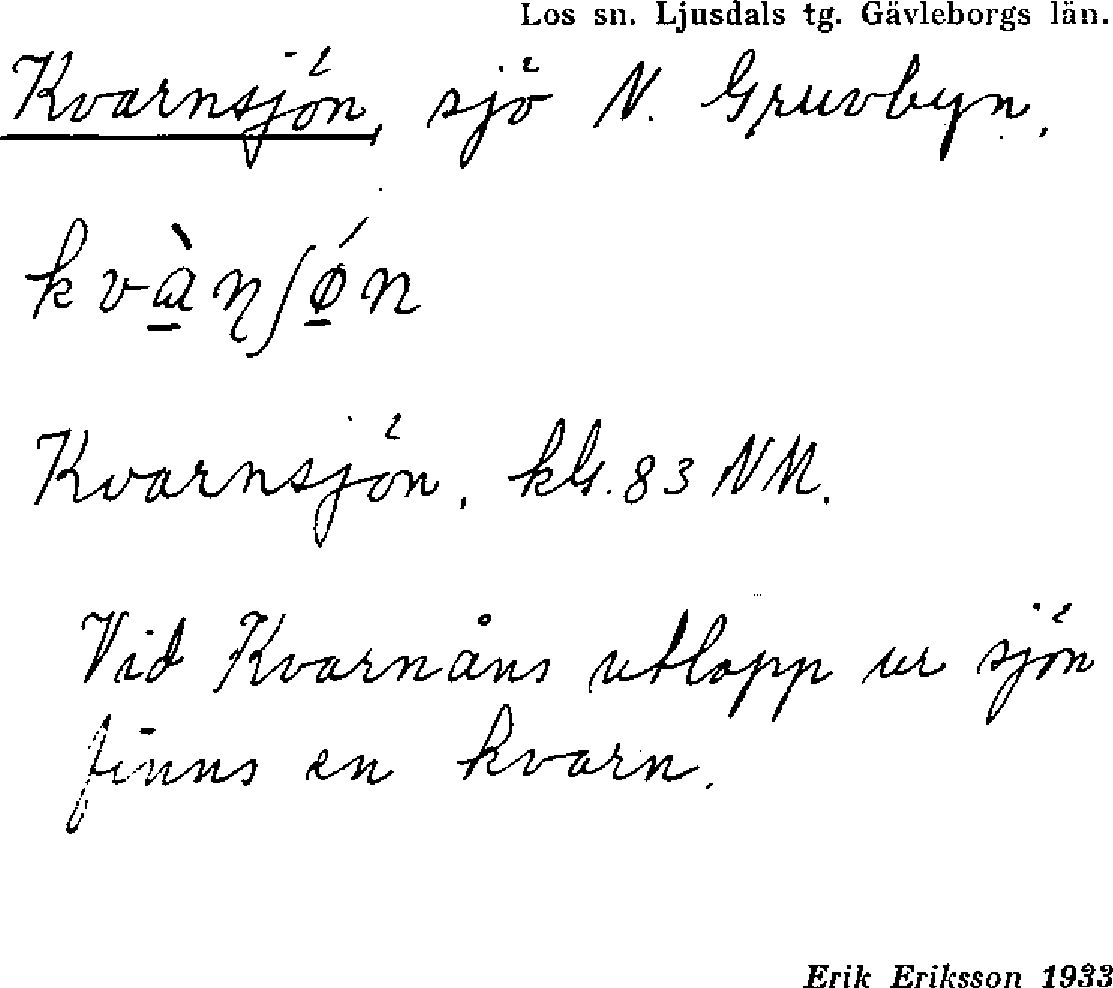 Los sn. Ljusdals tg. Gävleborgs län.
Kvarnsjön, sjö N. Gruvbyn.
kvàɳʃǿn
Kvarnsjön, kbl. 83 NM.
Vid Kvarnåns utlopp ur sjön
finns en kvarn.
Erik Eriksson 1933